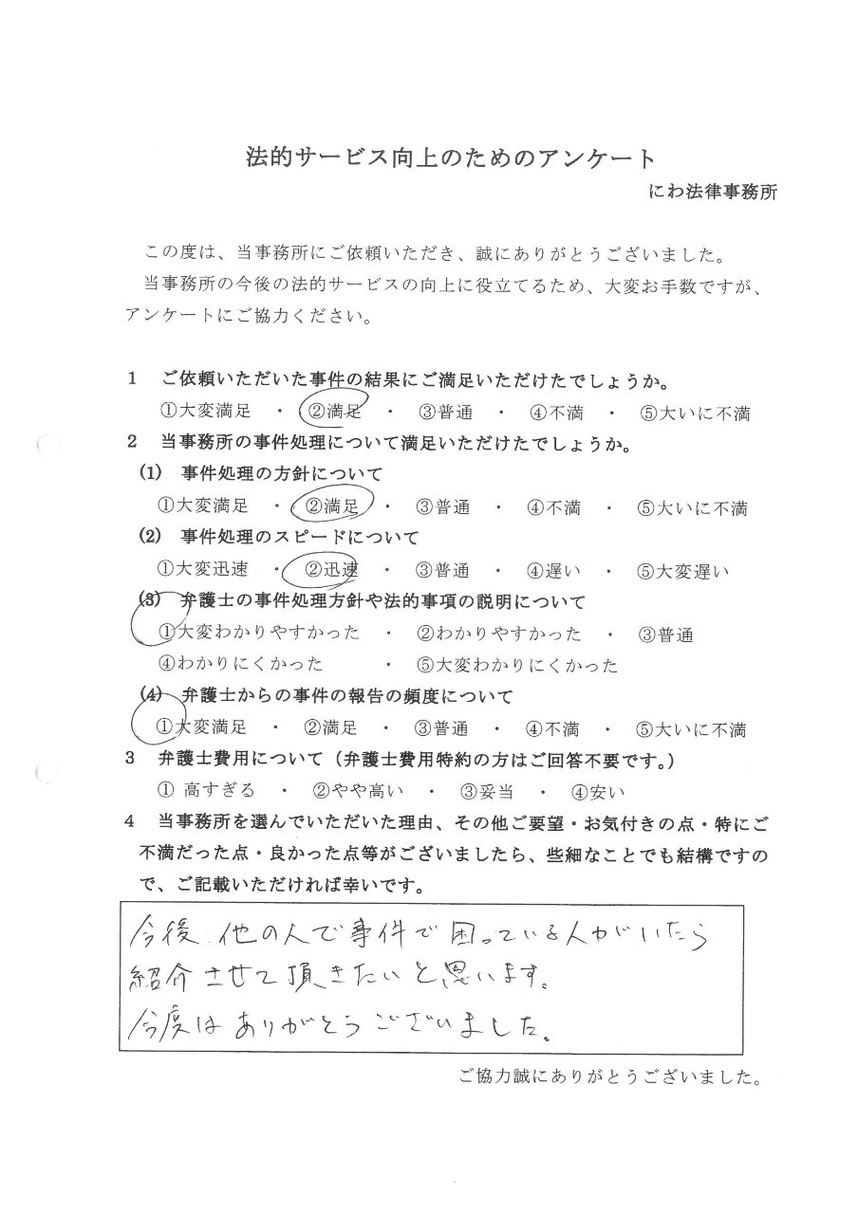 法的サービス向上のためのアンケート
にわ法律事務所
この度は、当事務所にご依頼いただき、誠にありがとうございました。
当事務所の今後の法的サービスの向上に役立てるため、大変お手数ですが、
アンケートにご協力ください。
1 ご依頼いただいた事件の結果にご満足いただけたでしょうか。
①大変満足 ・ ②満足 ・ ③普通 ・ ④不満 ・ ⑤大いに不満
2 当事務所の事件処理について満足いただけたでしょうか。
(1) 事件処理の方針について
①大変満足 ・ ②満足 ・ ③普通 ・ ④不満 ・ ⑤大いに不満
(2) 事件処理のスピードについて
①大変迅速 ・ ②迅速 ・ ③普通 ・ ④遅い ・ ⑤大変遅い
(3) 弁護士の事件処理方針や法的事項の説明について
①大変わかりやすかった ・ ②わかりやすかった ・ ③普通
④わかりにくかった ・ ⑤大変わかりにくかった
(4) 弁護士からの事件の報告の頻度について
①大変満足 ・ ②満足 ・ ③普通 ・ ④不満 ・ ⑤大いに不満
3 弁護士費用について（弁護士費用特約の方はご回答不要です。）
① 高すぎる ・ ②やや高い ・ ③妥当 ・ ④安い
4 当事務所を選んでいただいた理由、その他ご要望・お気付きの点・特にご
不満だった点・良かった点等がございましたら、些細なことでも結構ですの
で、ご記載いただければ幸いです。
今後、他の人で事件で困っている人がいたら
紹介させて頂きたいと思います。
今度はありがとうございました。
ご協力誠にありがとうございました。